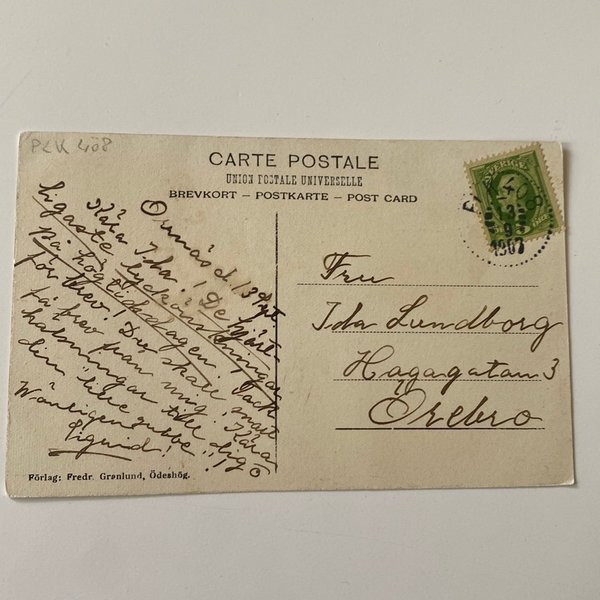 PLK 408
CARTE POSTALE
UNION POSTALE UNIVERSELLE
BREVKORT — POSTKARTE — POST CARD
SVERIGE
PLK 408
13
9
1907
d. 13 Sept.
Kära Ida! De hjärt-
ligaste lyckönskningar
på högtidsdagen. Tack
för brev! Du skall snart
få brev från mig. Kära
hälsningar till dig o
den lille gubbe"!
Vänligen
Sigrid!
Fru
Ida Lundborg
Hagagatan 3
Örebro
Förlag: Fredr. Grønlund, Ödeshög.